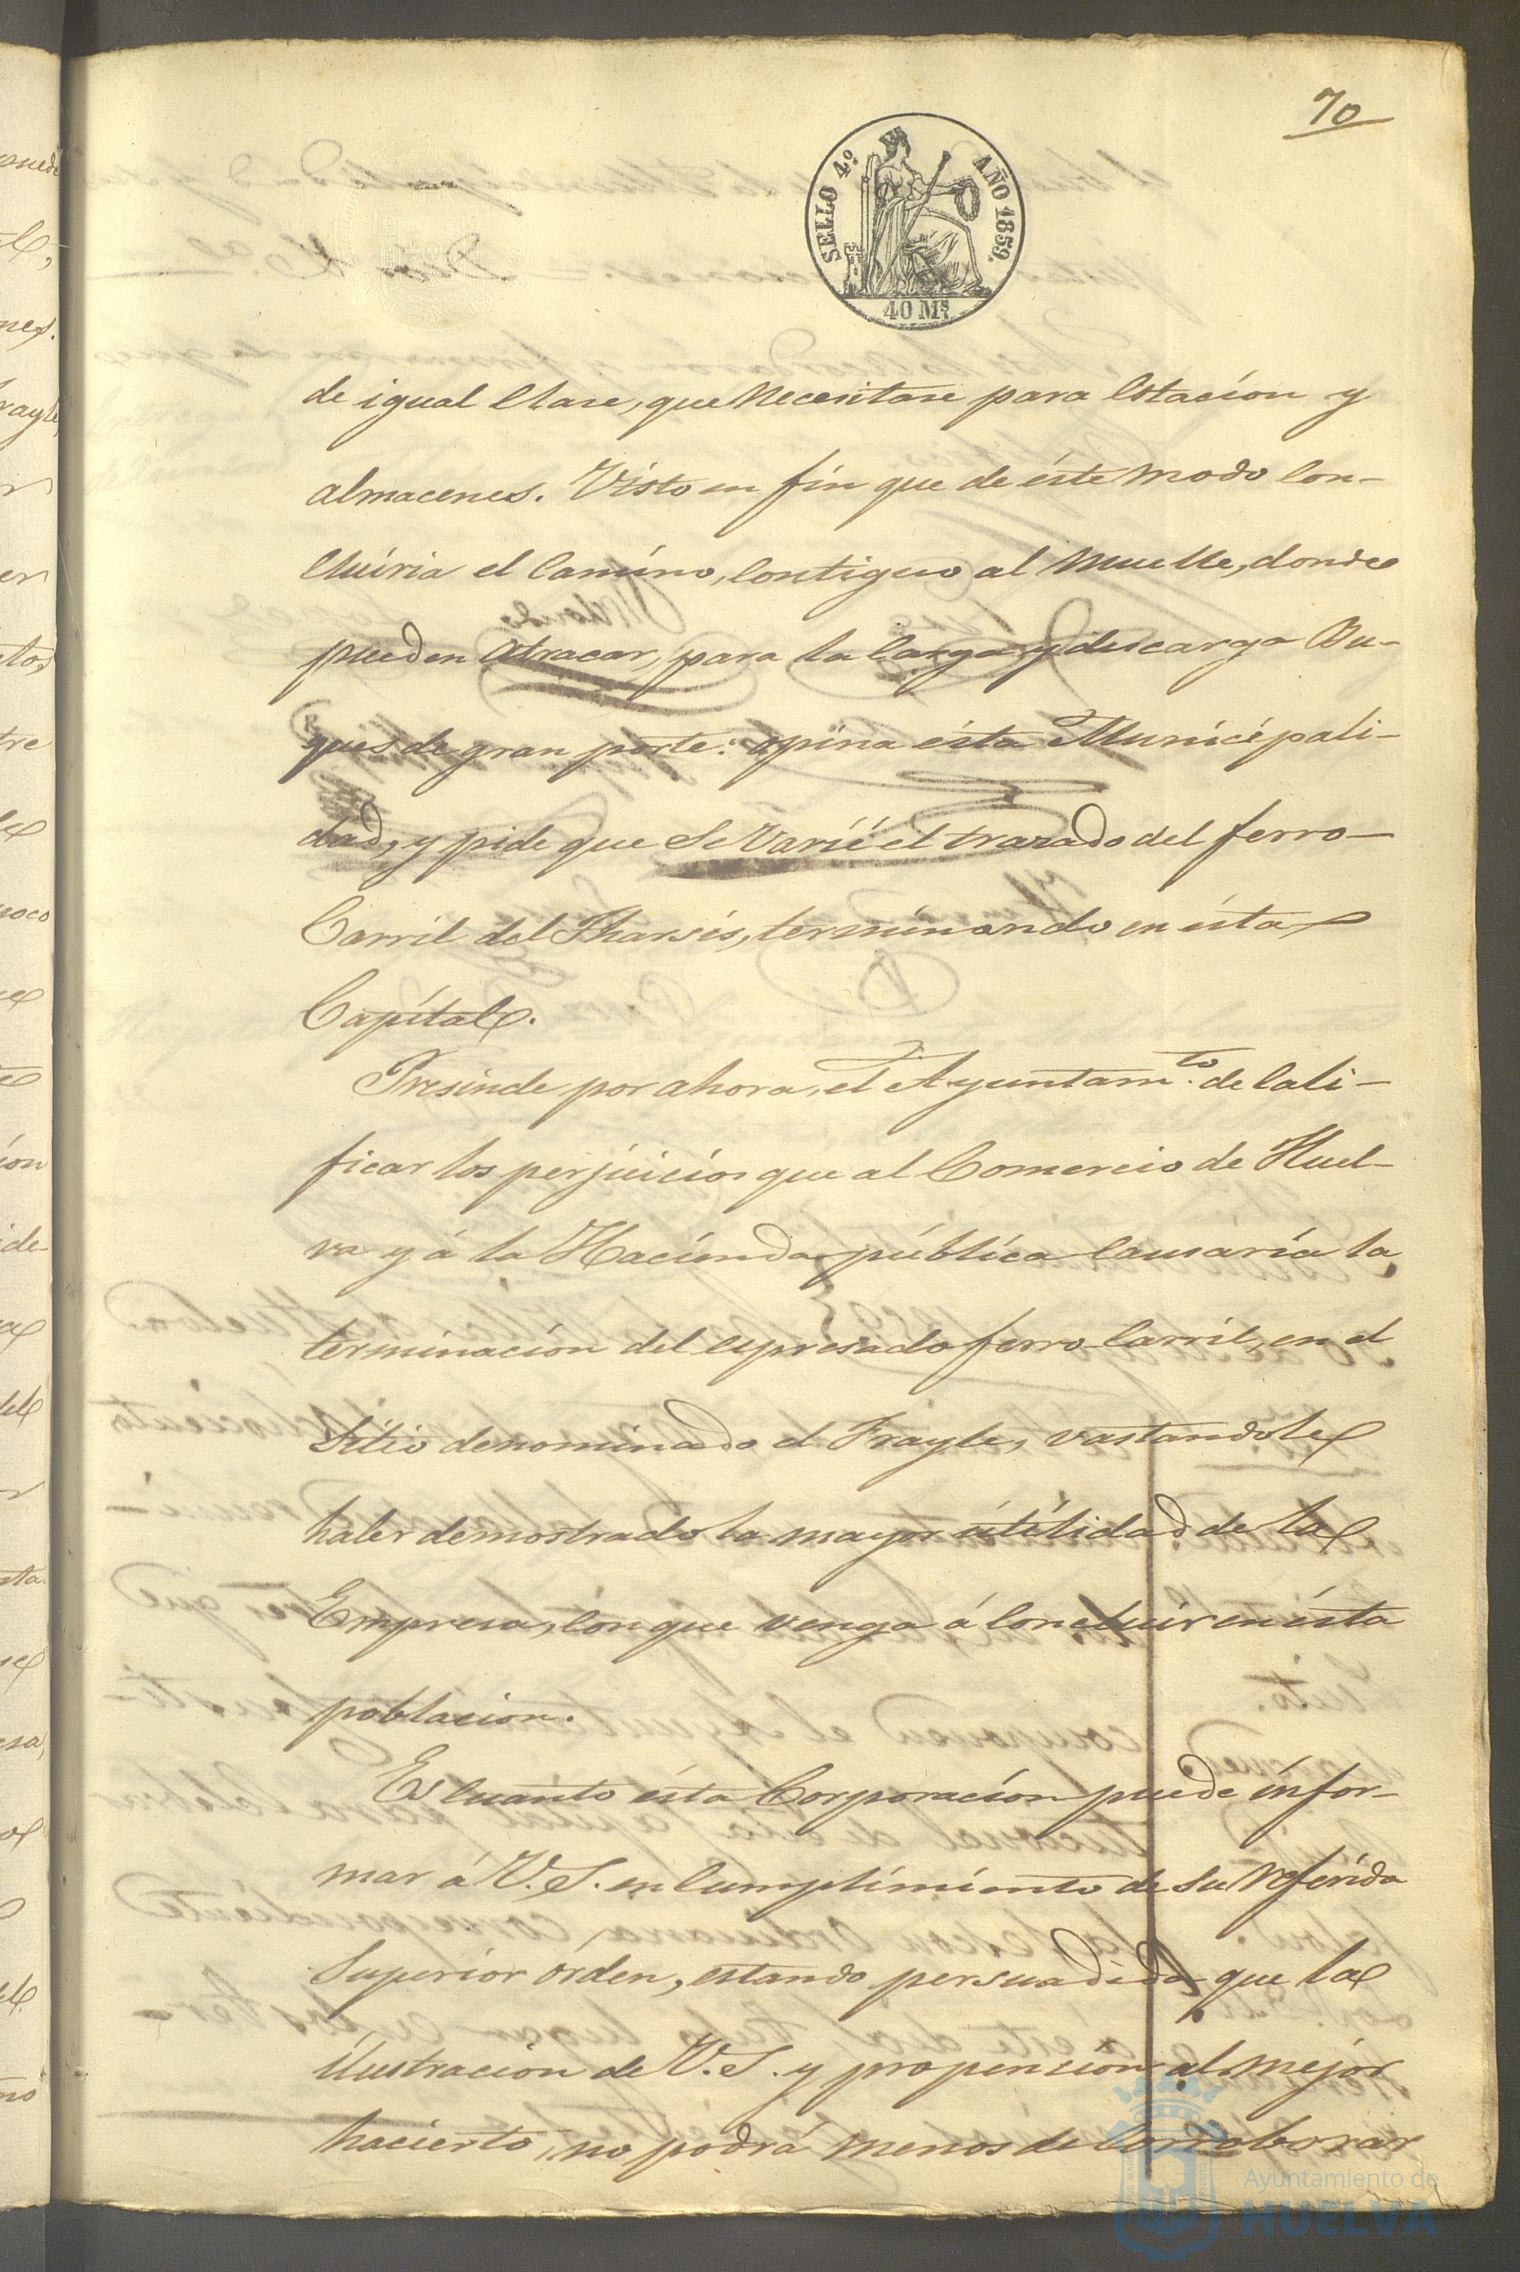 70
SELLO 4º AÑO 1859.
40 Mˢ
de igual clase, que necesitase para Estacion y
almacenes. Visto en fin que de éste modo con-
cluiria el Camino, contiguo al muelle, donde
pueden atracar, para la carga y descarga Bu-
ques de gran porte: opina ésta Municipali-
dad, y pide que se varíe el trazado del ferro-
Carril del Tharsis, terminando en ésta
Capital.
Presinde por ahora, el Ayuntamᵗᵒ. de cali-
ficar los perjuicios que al Comercio de Huel-
va y á la Hacienda pública causaría la
terminacion del espresado ferro-Carril, en el
Sitio denominado el Frayle, vastandole
haber demostrado la mayor utilidad de la
Empresa, con que venga á concluir en ésta
poblacion.
Es cuanto ésta Corporacion puede infor-
mar á V.S. en cumplimiento de su referida
Superior órden, estando persuadida que la
ilustracion de V.S. y propension al mejor
hacierto, no podrá menos de corroborar
Ayuntamiento de
HUELVA